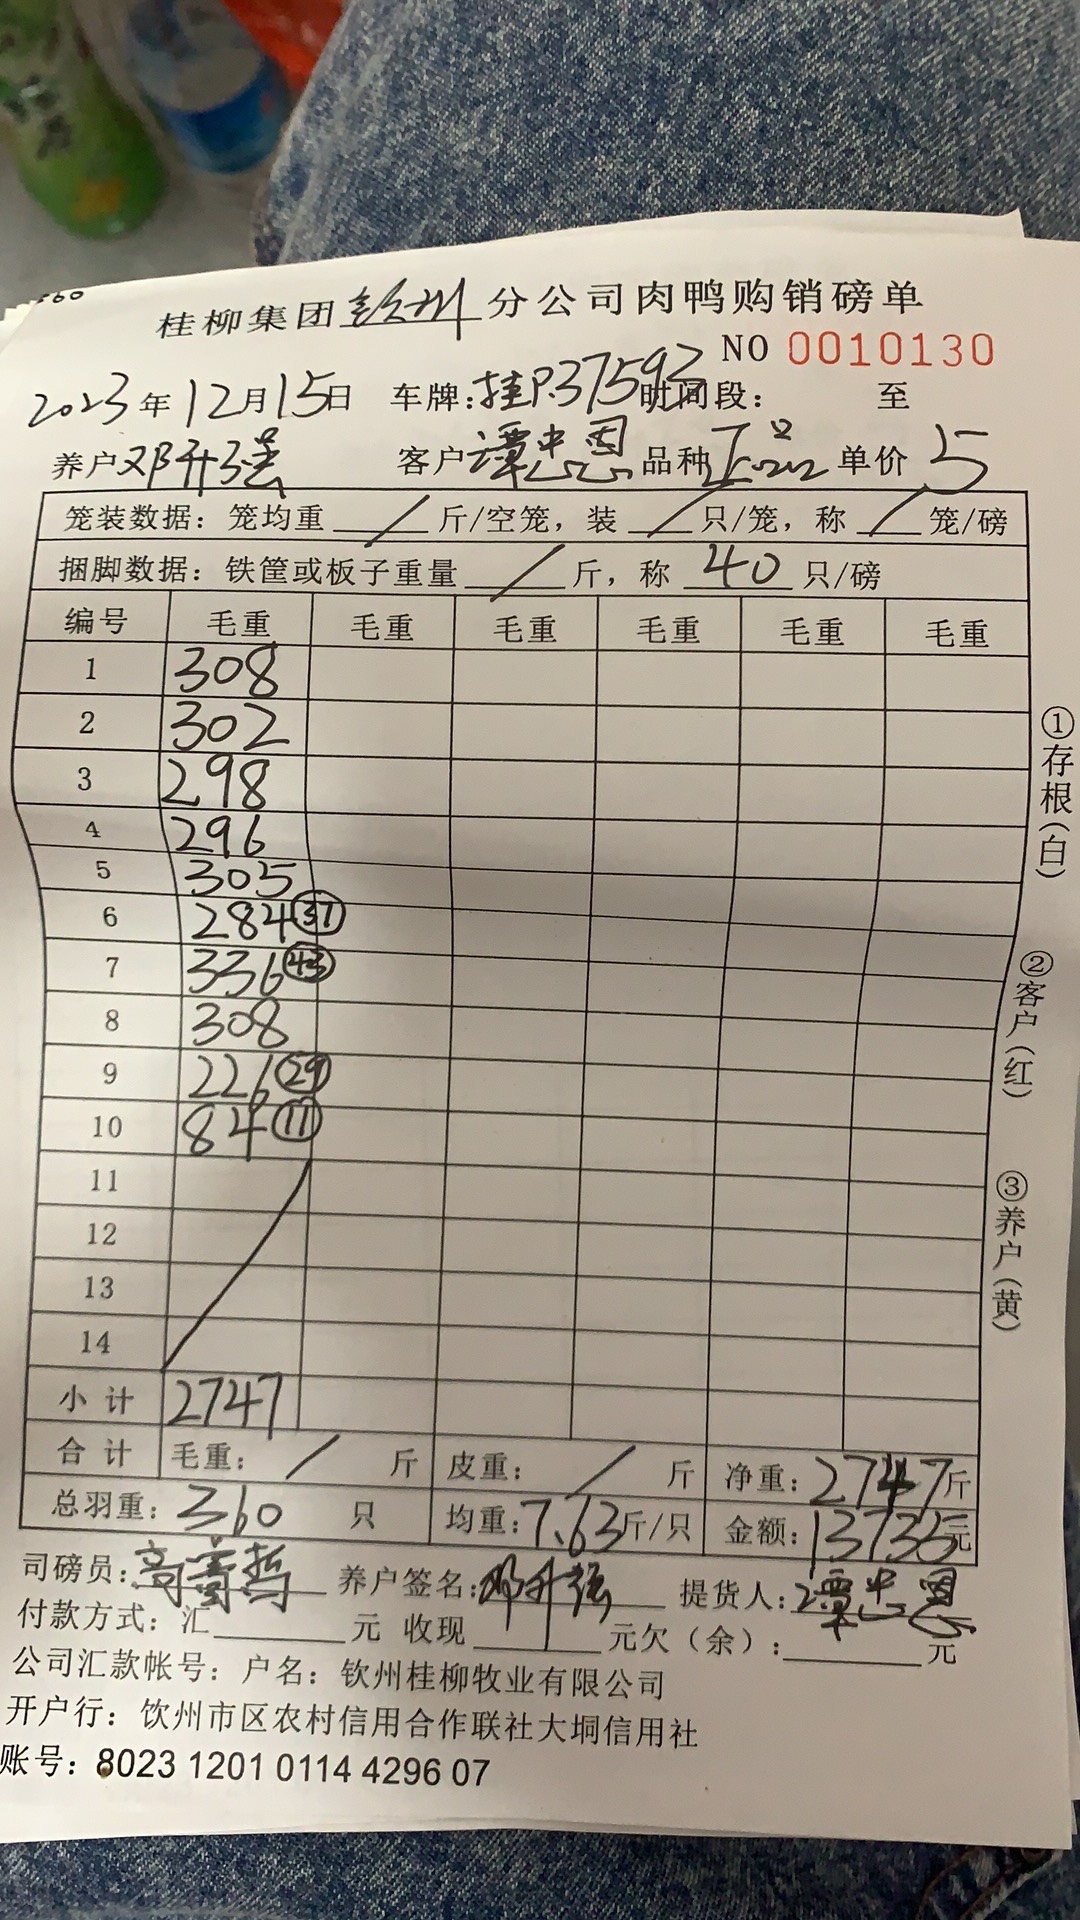 360
桂柳集团钦州分公司肉鸭购销磅单
NO 0010130
2023年12月15日 车牌:桂P.37593 时间段: 至
养户邓升强 客户谭忠恩 品种正品 单价5
笼装数据: 笼均重 / 斤/空笼, 装 / 只/笼, 称 / 笼/磅
捆脚数据: 铁筐或板子重量 / 斤, 称 40 只/磅
编号 毛重 毛重 毛重 毛重 毛重 毛重
1 308
2 302
3 298
4 296
5 305
6 284 37
7 336 43
8 308
9 226 29
10 84 11
11
12
13
14
小计 2747
合计 毛重: / 斤 皮重: / 斤 净重: 2747斤
总羽重: 360 只 均重: 7.63斤/只 金额: 13735元
司磅员: 养户签名:邓升强 提货人:谭忠恩
付款方式: 汇 元 收现 元欠(余): 元
公司汇款帐号: 户名: 钦州桂柳牧业有限公司
开户行: 饮州市区农村信用合作联社大垌信用社
账号: 8023 1201 0114 4296 07
①存根(白)
②客户(红)
③养户(黄)